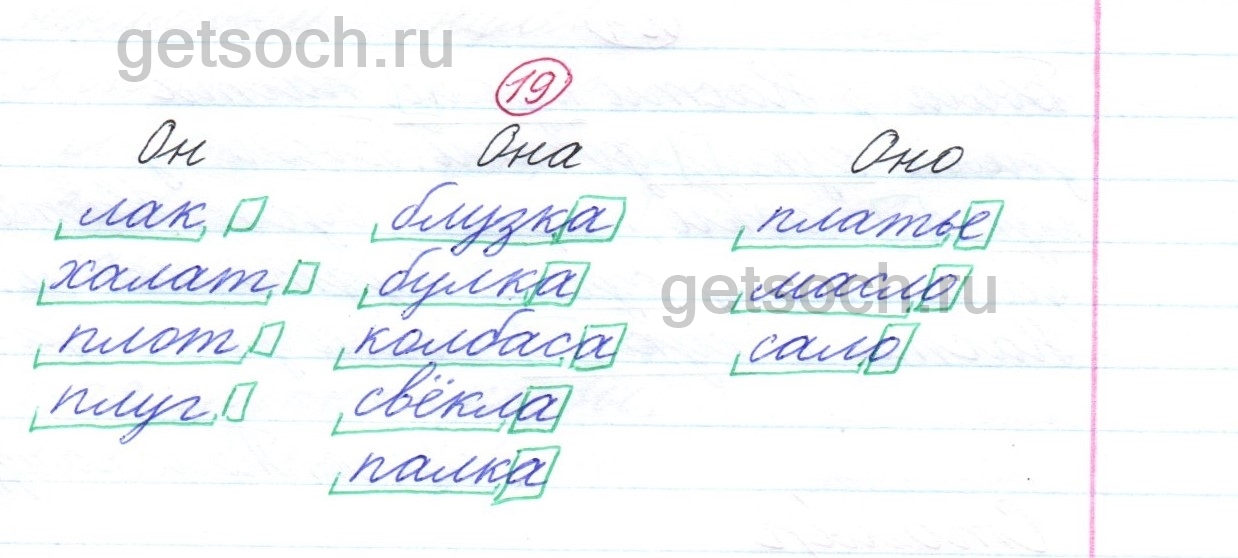 getsoch.ru
19
Он Она Оно
лак блузка платье
халат булка масло
getsoch.ru
плот колбаса сало
плуг свёкла
палка